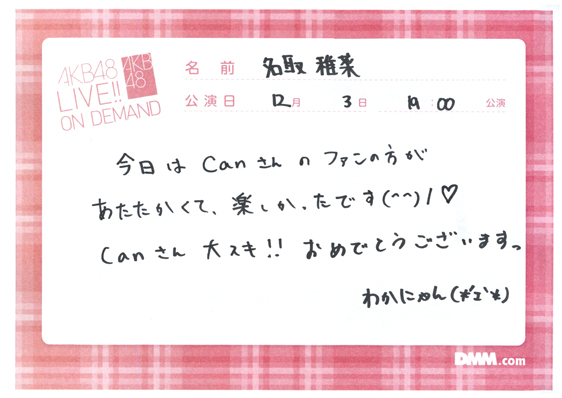 AKB48
LIVE!!
ON DEMAND
AKB
48
名前 名取 稚菜
公演日 12月 3日 19:00 公演
今日は Canさんの ファンの方が
あたたかくて、楽しかったです(^^)/♡
Canさん 大スキ!! おめでとうございます。
わかにゃん(*'ェ'*)
DMM.com